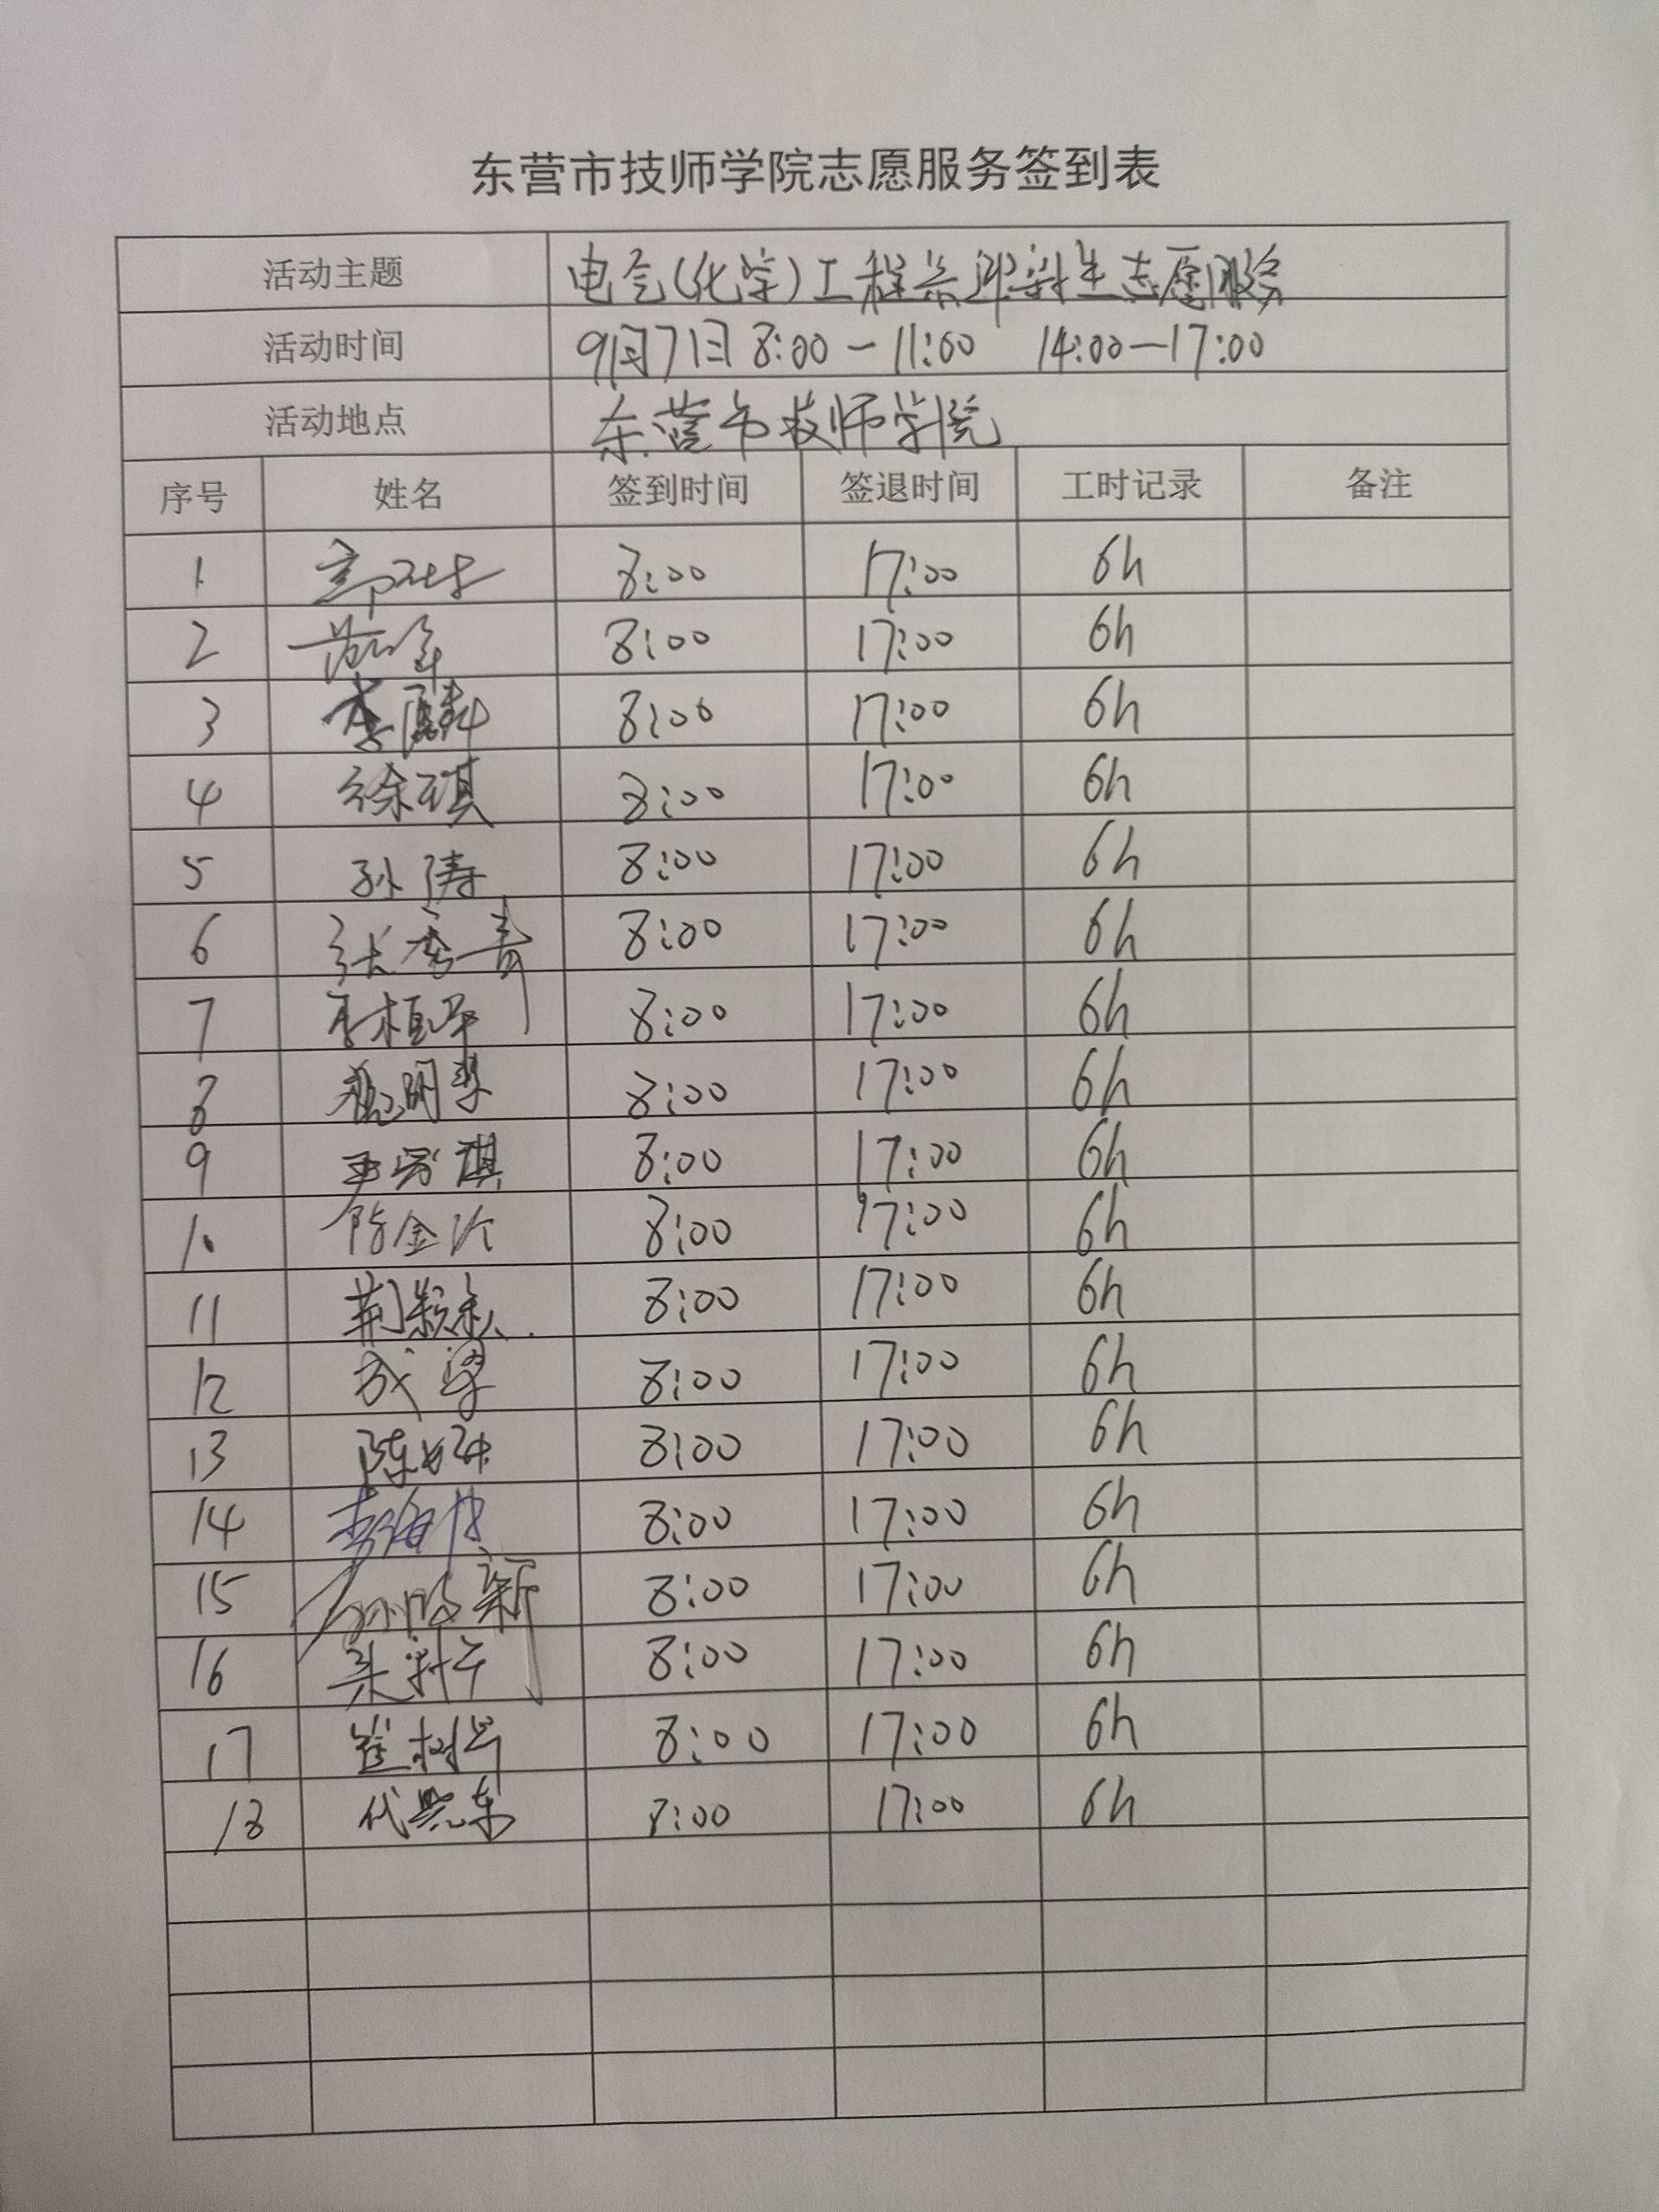 东营市技师学院志愿服务签到表
活动主题 电气(化学)工程系迎新生志愿服务
活动时间 9月7日 8:00-11:00 14:00-17:00
活动地点 东营市技师学院
序号 姓名 签到时间 签退时间 工时记录 备注
1 8:00 17:00 6h
2 8:00 17:00 6h
3 李 8:00 17:00 6h
4 徐琪 8:00 17:00 6h
5 孙涛 8:00 17:00 6h
6 张秀青 8:00 17:00 6h
7 8:00 17:00 6h
8 8:00 17:00 6h
9 8:00 17:00 6h
10 8:00 17:00 6h
11 8:00 17:00 6h
12 成梁 8:00 17:00 6h
13 陈 8:00 17:00 6h
14 李海 8:00 17:00 6h
15 8:00 17:00 6h
16 8:00 17:00 6h
17 崔树 8:00 17:00 6h
18 代兴东 8:00 17:00 6h